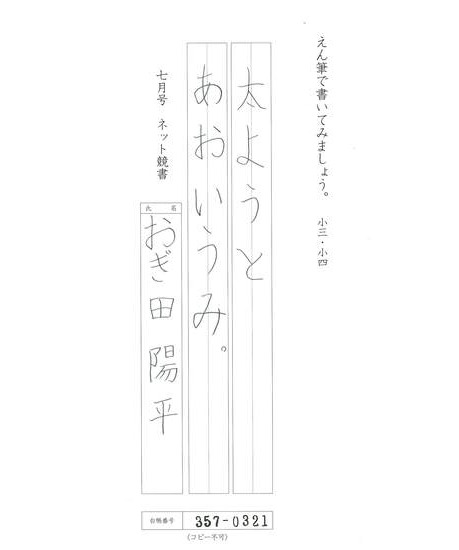 えん筆で書いてみましょう。 小三・小四
太ようと
あおいうみ。
七月号 ネット競書
氏名
おぎ田陽平
台帳番号 357-0321
(コピー不可)